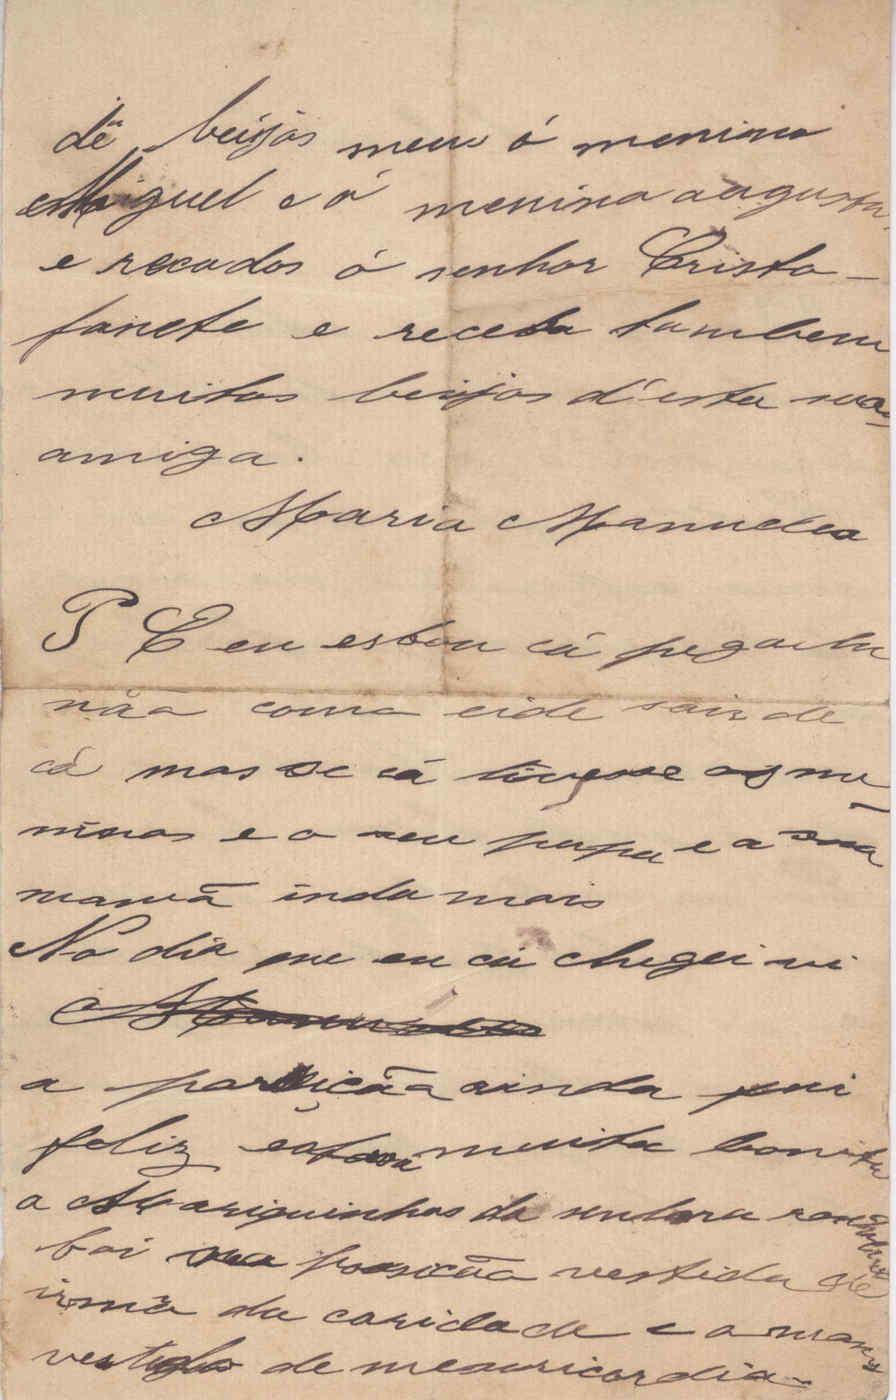 dê beijos meus ó menino
Miguel e á menina augusta
e recados ó senhor Cristo-
fanete e receba tambem
muitos beijos d'esta sua
amiga.
Maria Manuela
P E eu estou cá pegada
não coma eide sair de
cá mas se cá tivese os me-
ninos e o seu papa e a sua
mamã inda mais
No dia que eu cá chegei vi
a porsição ainda fui
feliz estava muita bonita
a Mariquinhas da senhora
foi na porsição vestida de
irmã da caridade e a
vestida de mesericordia